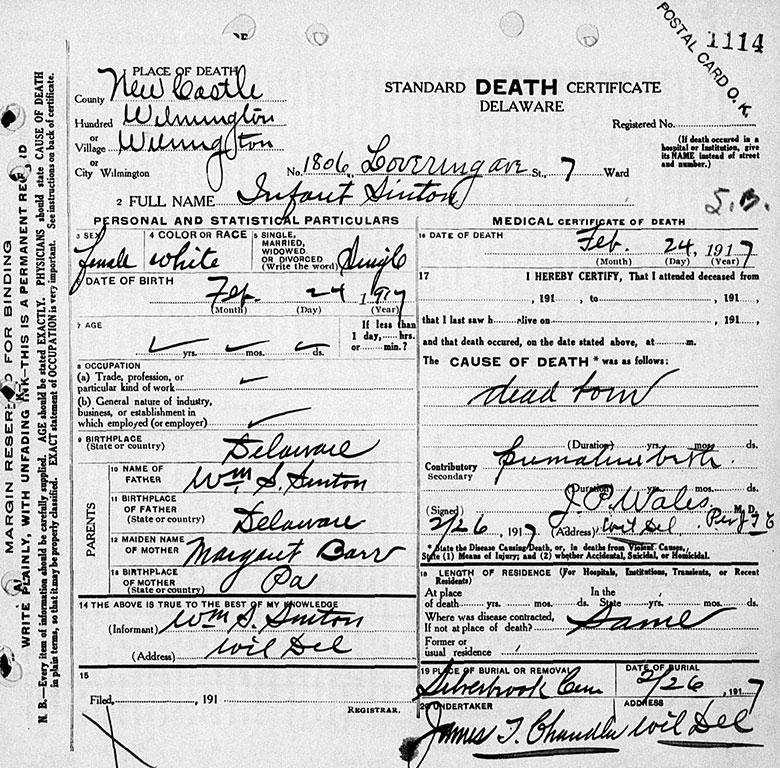 POSTAL CARD O.K.
1114
STANDARD DEATH CERTIFICATE
DELAWARE
Registered No.
(If death occured in a hospital or Institution, give its NAME instead of street and number.)
MARGIN RESERVED FOR BINDING
WRITE PLAINLY, WITH UNFADING INK—THIS IS A PERMANENT RECORD
N. B.—Every item of information should be carefully supplied. AGE should be stated EXACTLY. PHYSICIANS should state CAUSE OF DEATH
in plain terms, so that it may be properly classified. EXACT statement of OCCUPATION is very important. See instructions on back of certificate.
PLACE OF DEATH
County New Castle
Hundred Wilmington
or
Village Wilmington
or
City Wilmington No. 1806 Lovering ave St., 7 Ward
2 FULL NAME Infant Sinton
S.B.
PERSONAL AND STATISTICAL PARTICULARS
3 SEX female
4 COLOR OR RACE white
5 SINGLE, MARRIED, WIDOWED OR DIVORCED (Write the word) Single
DATE OF BIRTH
Feb. 24 1917
(Month) (Day) (Year)
7 AGE
yrs. mos. ds.
If less than 1 day, hrs. or min.?
8 OCCUPATION
(a) Trade, profession, or particular kind of work
(b) General nature of industry, business, or establishment in which employed (or employer)
9 BIRTHPLACE
(State or country) Delaware
PARENTS
10 NAME OF FATHER Wm S. Sinton
11 BIRTHPLACE OF FATHER (State or country) Delaware
12 MAIDEN NAME OF MOTHER Margaret Barr
13 BIRTHPLACE OF MOTHER (State or country) Pa
14 THE ABOVE IS TRUE TO THE BEST OF MY KNOWLEDGE
(Informant) Wm S. Sinton
(Address) Wil Del
15
Filed, , 191
REGISTRAR.
MEDICAL CERTIFICATE OF DEATH
16 DATE OF DEATH
Feb. 24, 1917
(Month) (Day) (Year)
17 I HEREBY CERTIFY, That I attended deceased from
, 191 , to , 191 ,
that I last saw h alive on , 191 ,
and that death occured, on the date stated above, at m.
The CAUSE OF DEATH * was as follows:
dead born
(Duration) yrs. mos. ds.
Contributory Secondary premature birth.
(Duration) yrs. mos. ds.
(Signed) J. P. Wales M. D.
2/26, 1917 (Address) Wil Del.
* State the Disease Causing Death, or, in deaths from Violent Causes,
State (1) Means of Injury; and (2) whether Accidental, Suicidal, or Homicidal.
18 LENGTH OF RESIDENCE (For Hospitals, Institutions, Transients, or Recent Residents)
At place of death yrs. mos. ds. In the State yrs. mos. ds.
Where was disease contracted, If not at place of death? Same
Former or usual residence
19 PLACE OF BURIAL OR REMOVAL
Silverbrook Cem
DATE OF BURIAL
2/26, 1917
20 UNDERTAKER
James T. Chandler
ADDRESS
Wil Del